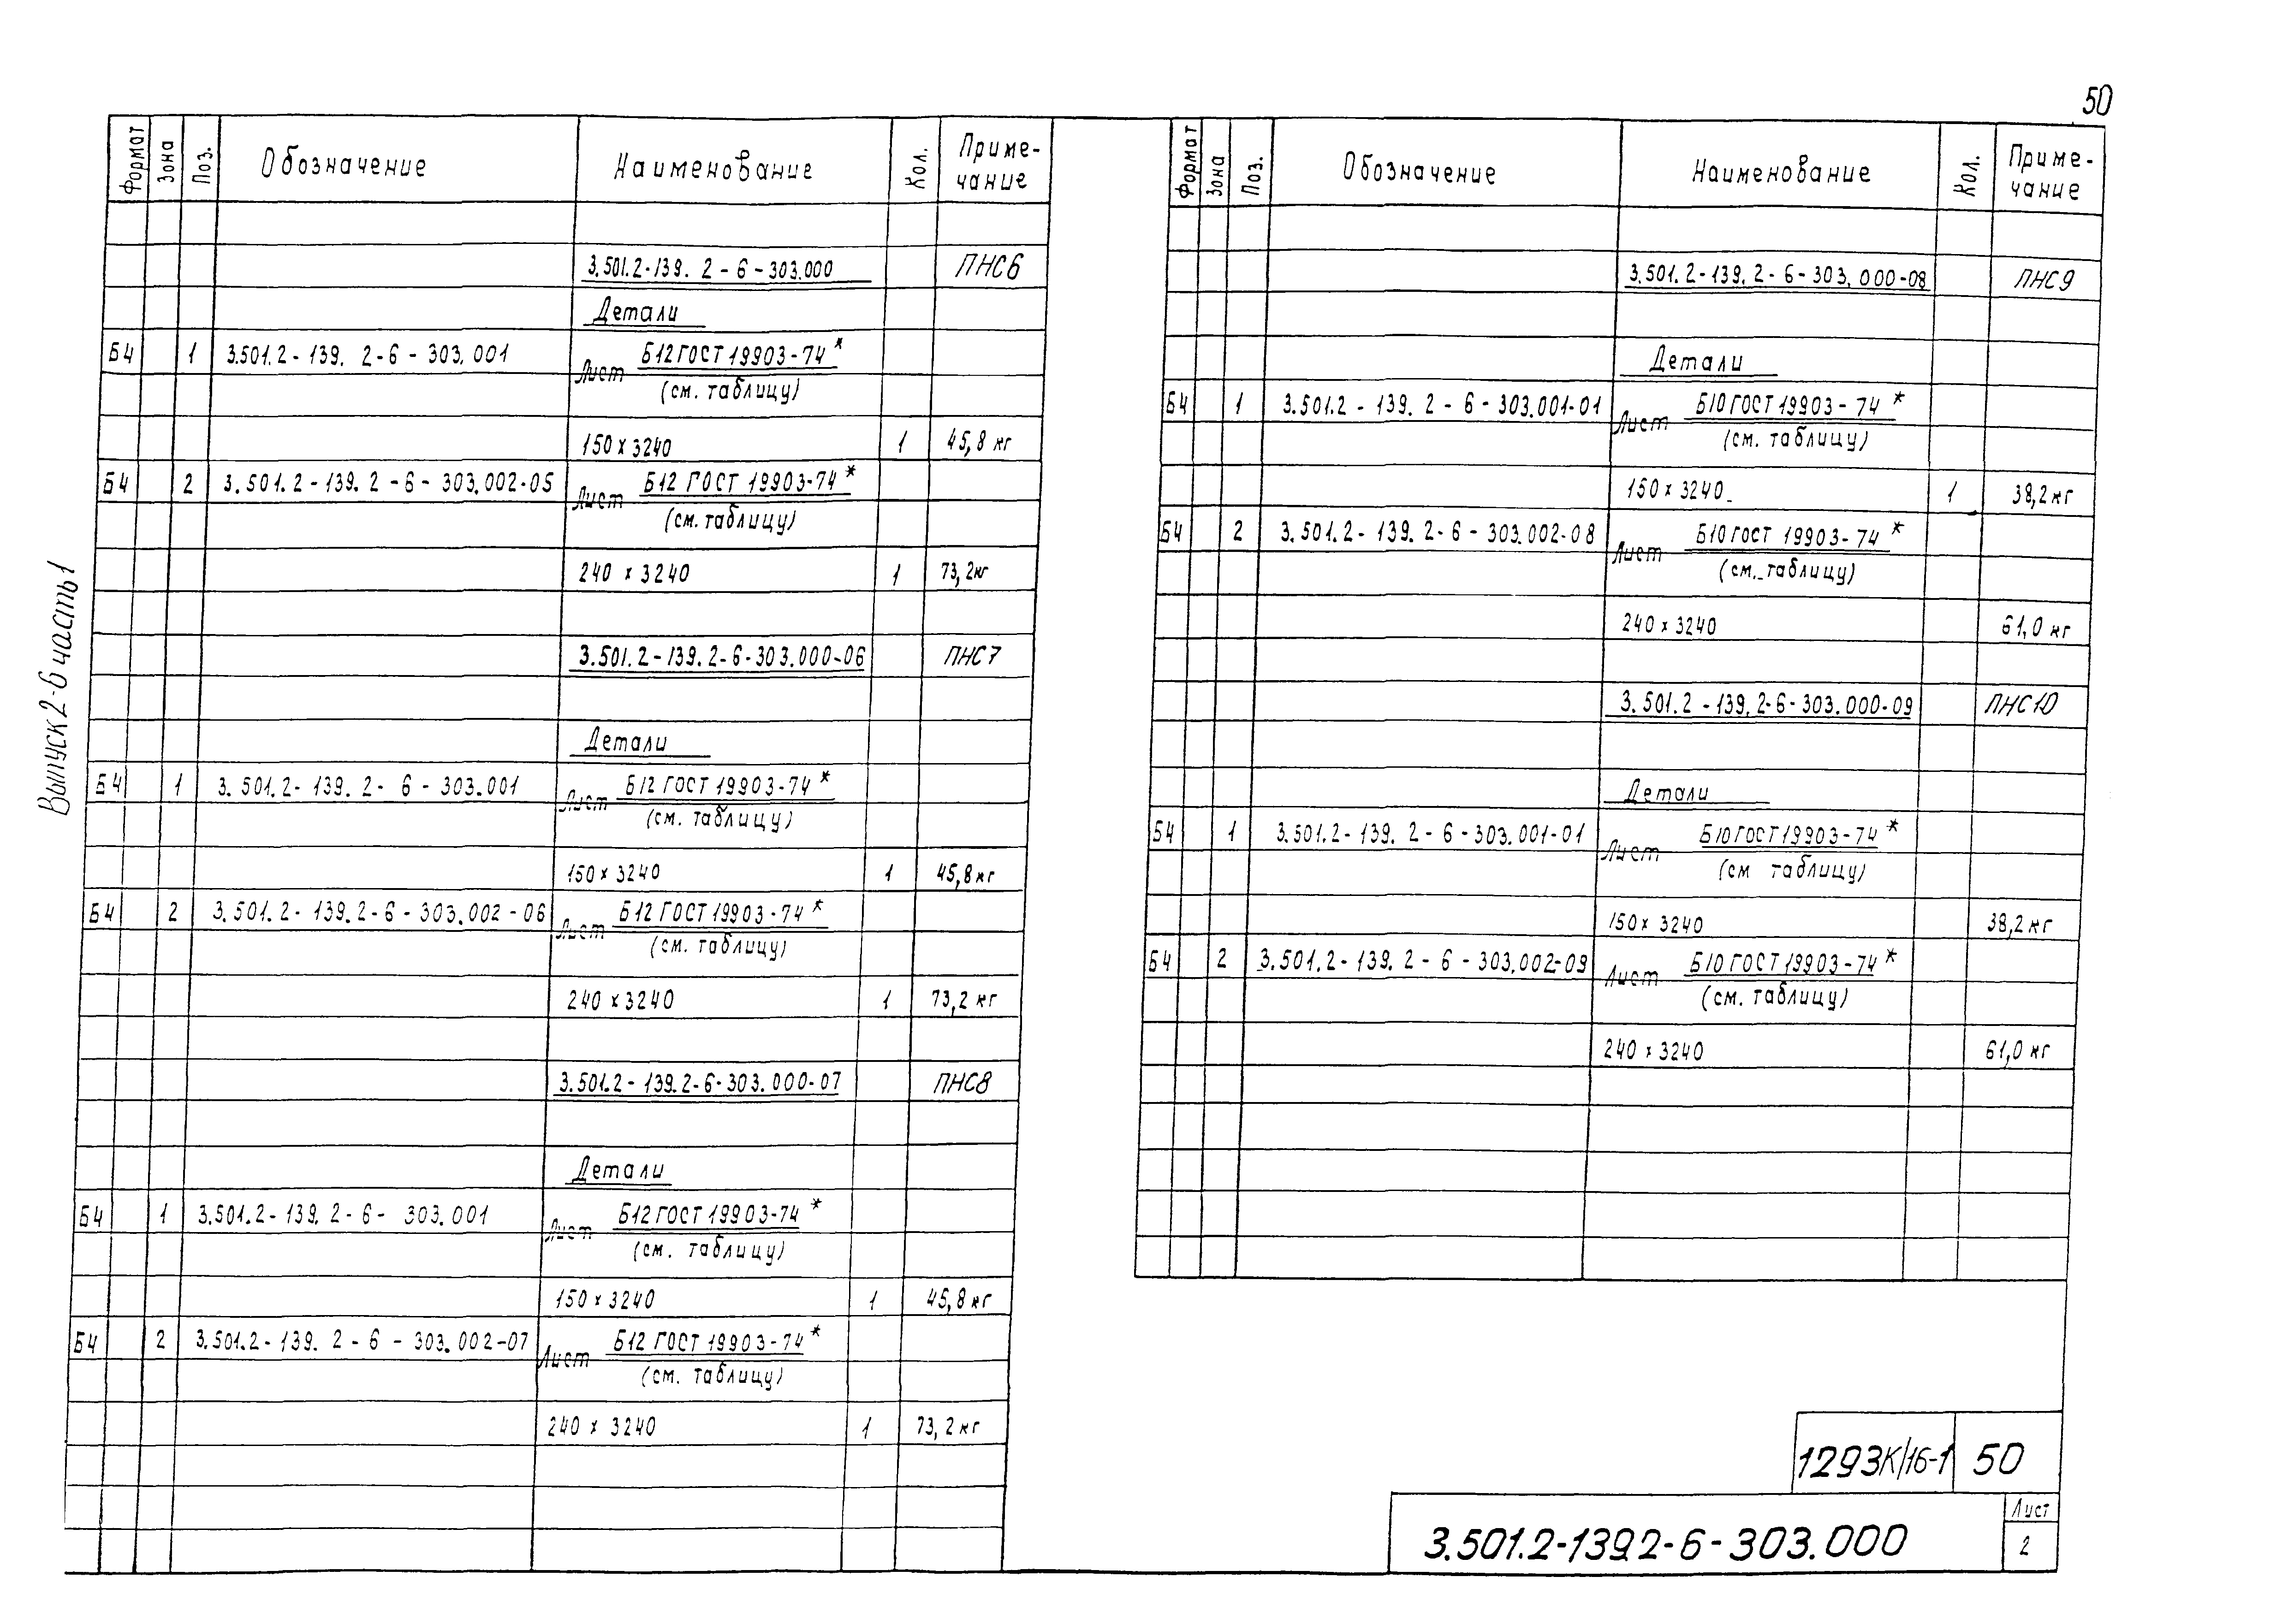 50
Выпуск 2-6 часть 1
Формат Зона Поз. Обозначение Наименование Кол. Приме-
чание
3.501.2-139. 2-6-303.000 ПНС6
Детали
Б4 1 3.501.2-139. 2-6-303.001 Лист Б12 ГОСТ 19903-74*
(см. таблицу)
150 х 3240 1 45,8 кг
Б4 2 3.501.2-139. 2-6-303.002-05 Лист Б12 ГОСТ 19903-74*
(см. таблицу)
240 х 3240 1 73,2кг
3.501.2-139.2-6-303.000-06 ПНС7
Детали
Б4 1 3.501.2-139. 2-6-303.001 Лист Б12 ГОСТ 19903-74*
(см. таблицу)
150 х 3240 1 45,8кг
Б4 2 3.501.2-139.2-6-303.002-06 Лист Б12 ГОСТ 19903-74*
(см. таблицу)
240 х 3240 1 73,2 кг
3.501.2-139.2-6-303.000-07 ПНС8
Детали
Б4 1 3.501.2-139. 2-6-303.001 Лист Б12 ГОСТ 19903-74*
(см. таблицу)
150 х 3240 1 45,8 кг
Б4 2 3.501.2-139. 2-6-303.002-07 Лист Б12 ГОСТ 19903-74*
(см. таблицу)
240 х 3240 1 73,2 кг
Формат Зона Поз. Обозначение Наименование Кол. Приме-
чание
3.501.2-139. 2-6-303.000-08 ПНС9
Детали
Б4 1 3.501.2-139. 2-6-303.001-01 Лист Б10 ГОСТ 19903-74*
(см. таблицу)
150 х 3240 1 38,2кг
Б4 2 3.501.2-139. 2-6-303.002-08 Лист Б10 ГОСТ 19903-74*
(см. таблицу)
240 х 3240 61,0 кг
3.501.2-139.2-6-303.000-09 ПНС10
Детали
Б4 1 3.501.2-139. 2-6-303.001-01 Лист Б10 ГОСТ 19903-74*
(см таблицу)
150 х 3240 38,2 кг
Б4 2 3.501.2-139. 2-6-303.002-09 Лист Б10 ГОСТ 19903-74*
(см. таблицу)
240 х 3240 61,0 кг
1293К/16-1 50
3.501.2-139.2-6-303.000 Лист
2